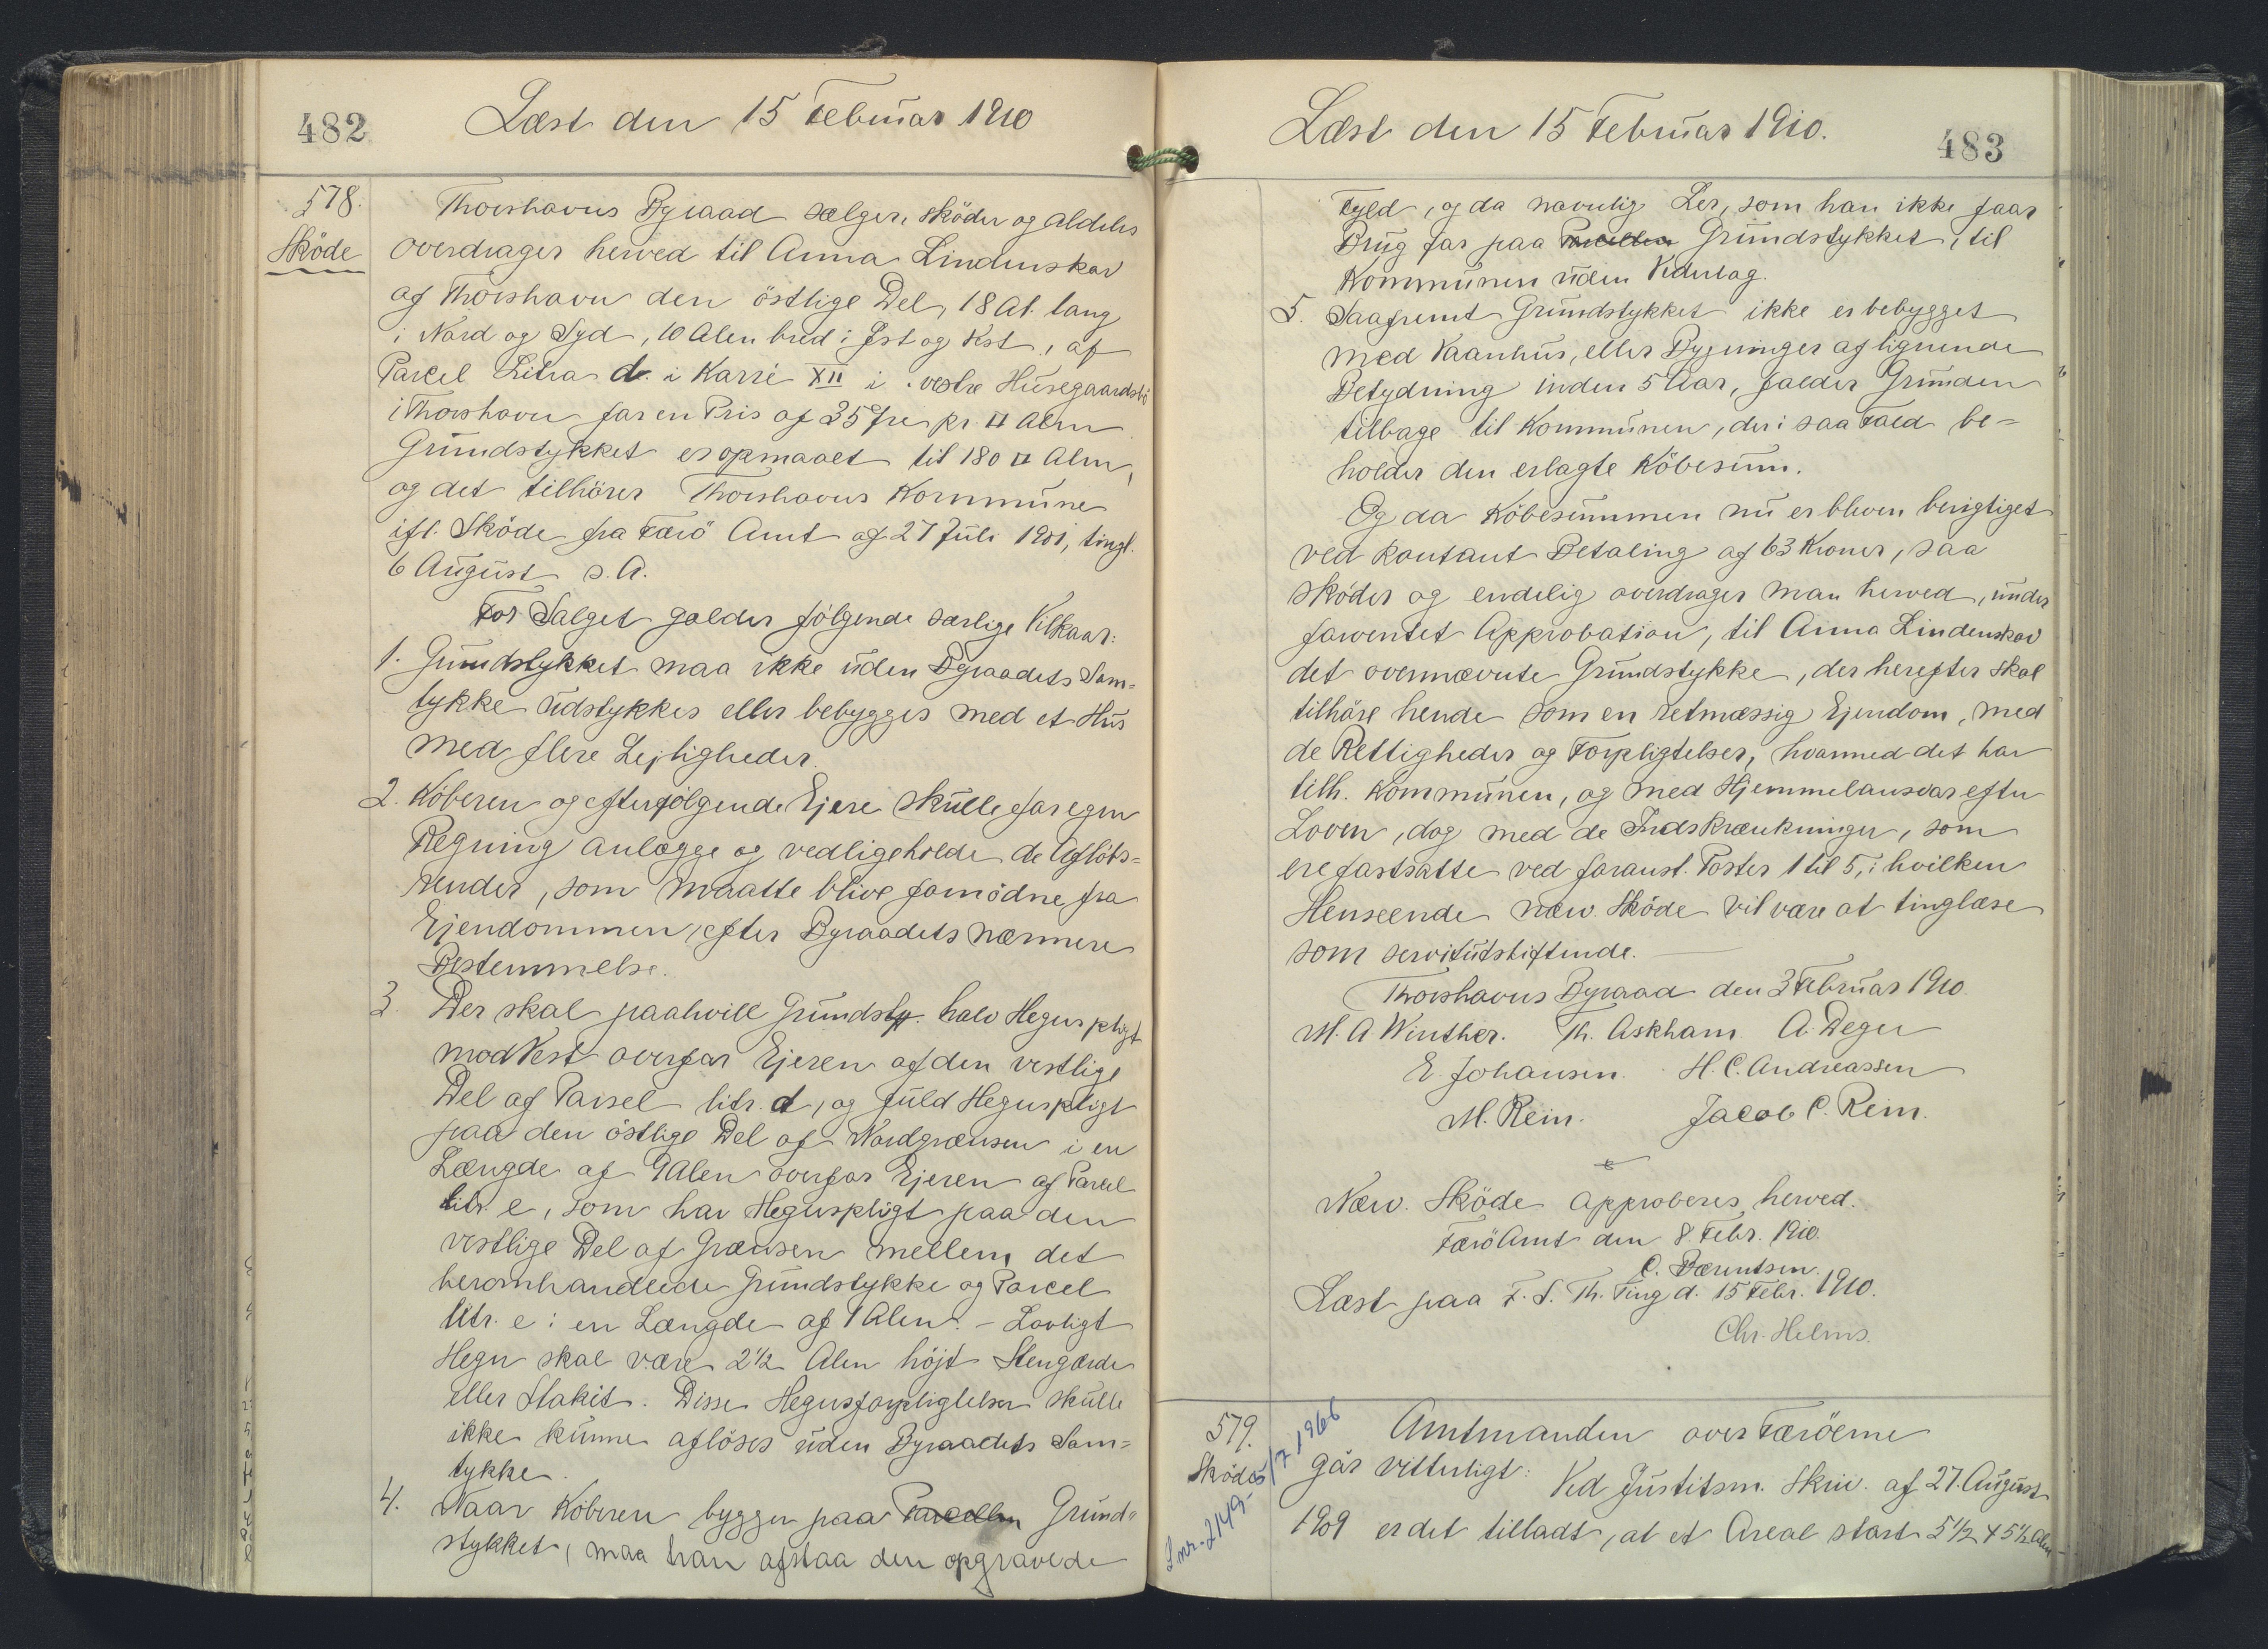 482
Læst den 15 Februar 1910
578.
Sköde
Thorshavns Byraad sælger, sköder og aldeles
overdrager herved til Anna Lindenskov
af Thorshavn den östlige Del, 18 Al. lang
i Nord og Syd, 10 Alen bred i Øst og Vest, af
Parcel Litra d. i Karré XII i vestre Husegaardsbö
i Thorshavn for en Pris af 35 Øre pr. □ Alen
Grundstykket er opmaalt til 180 □ Alen,
og det tilhörer Thorshavns Kommune
ifl. Sköde fra Færö Amt af 27 Juli 1901, tingl.
6 August s. A.
For Salget gælder fölgende særlige Vilkaar:
1. Grundstykket maa ikke uden Byraadets Sam=
tykke udstykkes eller bebygges med et Hus
med flere Lejligheder.
2. Köberen og efterfölgende Ejere skulle for egen
Regning anlægge og vedligeholde de Aflöbs=
render, som maatte blive fornödne fra
Ejendommen, efter Byraadets nærmere
Bestemmelse.
3. Der skal paahvile Grundsty. halv Hegnspligt
mod Vest overfor Ejeren af den vestlige
Del af Parsel litr. d, og fuld Hegnspligt
paa den östlige Del af Nordgrænsen i en
Længde af 9 Alen overfor Ejeren af Parcel
litr. e, som har Hegnspligt paa den
vestlige Del af Grænsen mellem det
heromhandlede Grundstykke og Parcel
litr. e i en Længde af 1 Alen. - Lovligt
Hegn skal være 2½ Alen höjt Stengærde
eller Stakit. Disse Hegnsforpligtelser skulle
ikke kunne aflöses uden Byraadets Sam=
tykke.
4. Naar Köberen bygger paa Parcellen Grund=
stykket, maa han afstaa den opgravede
Læst den 15 Februar 1910.
483
Fyld, og da navnlig Ler, som han ikke faar
Brug for paa Parcellen Grundstykket, til
Kommunen uden Vederlag.
5. Saafremt Grundstykket ikke er bebygget
med Vaanhus, eller Bygninger af lignende
Betydning inden 5 Aar, falder Grunden
tilbage til Kommunen, der i saa Fald be=
holder den erlagte Köbesum.
Og da Köbesummen nu er bleven berigtiget
ved kontant Betaling af 63 Kroner, saa
sköder og endelig overdrager man herved, under
forventet Approbation, til Anna Lindenskov
det ovennævnte Grundstykke, der herefter skal
tilhöre hende som en retmæssig Ejendom, med
de Rettigheder og Forpligtelser, hvormed det har
tilh. Kommunen, og med Hjemmelansvar efter
Loven, dog med de Indskrænkninger, som
ere fastsatte ved foranst. Poster 1 til 5, i hvilken
Henseende nærv. Sköde vil være at tinglæse
som servitutstiftende.
Thorshavns Byraad den 3 Februar 1910.
M. A Winther. Th. Askham A. Degn
E. Johansen. H. C. Andreassen
M. Rein. Jacob C. Rein.
Nærv. Sköde approberes herved.
Færö Amt den 8. Febr. 1910.
C. Bærentsen.
Læst paa F. S. Th. Ting d. 15 Febr. 1910.
Chr. Helms.
579.
Sköde
Lnr. 2149- 5/7 1966
Amtmanden over Færöerne
gör vitterligt: Ved Justitsm. Skriv. af 27. August
1909 er det tilladt, at et Areal stort 5½ x 5½ Alen